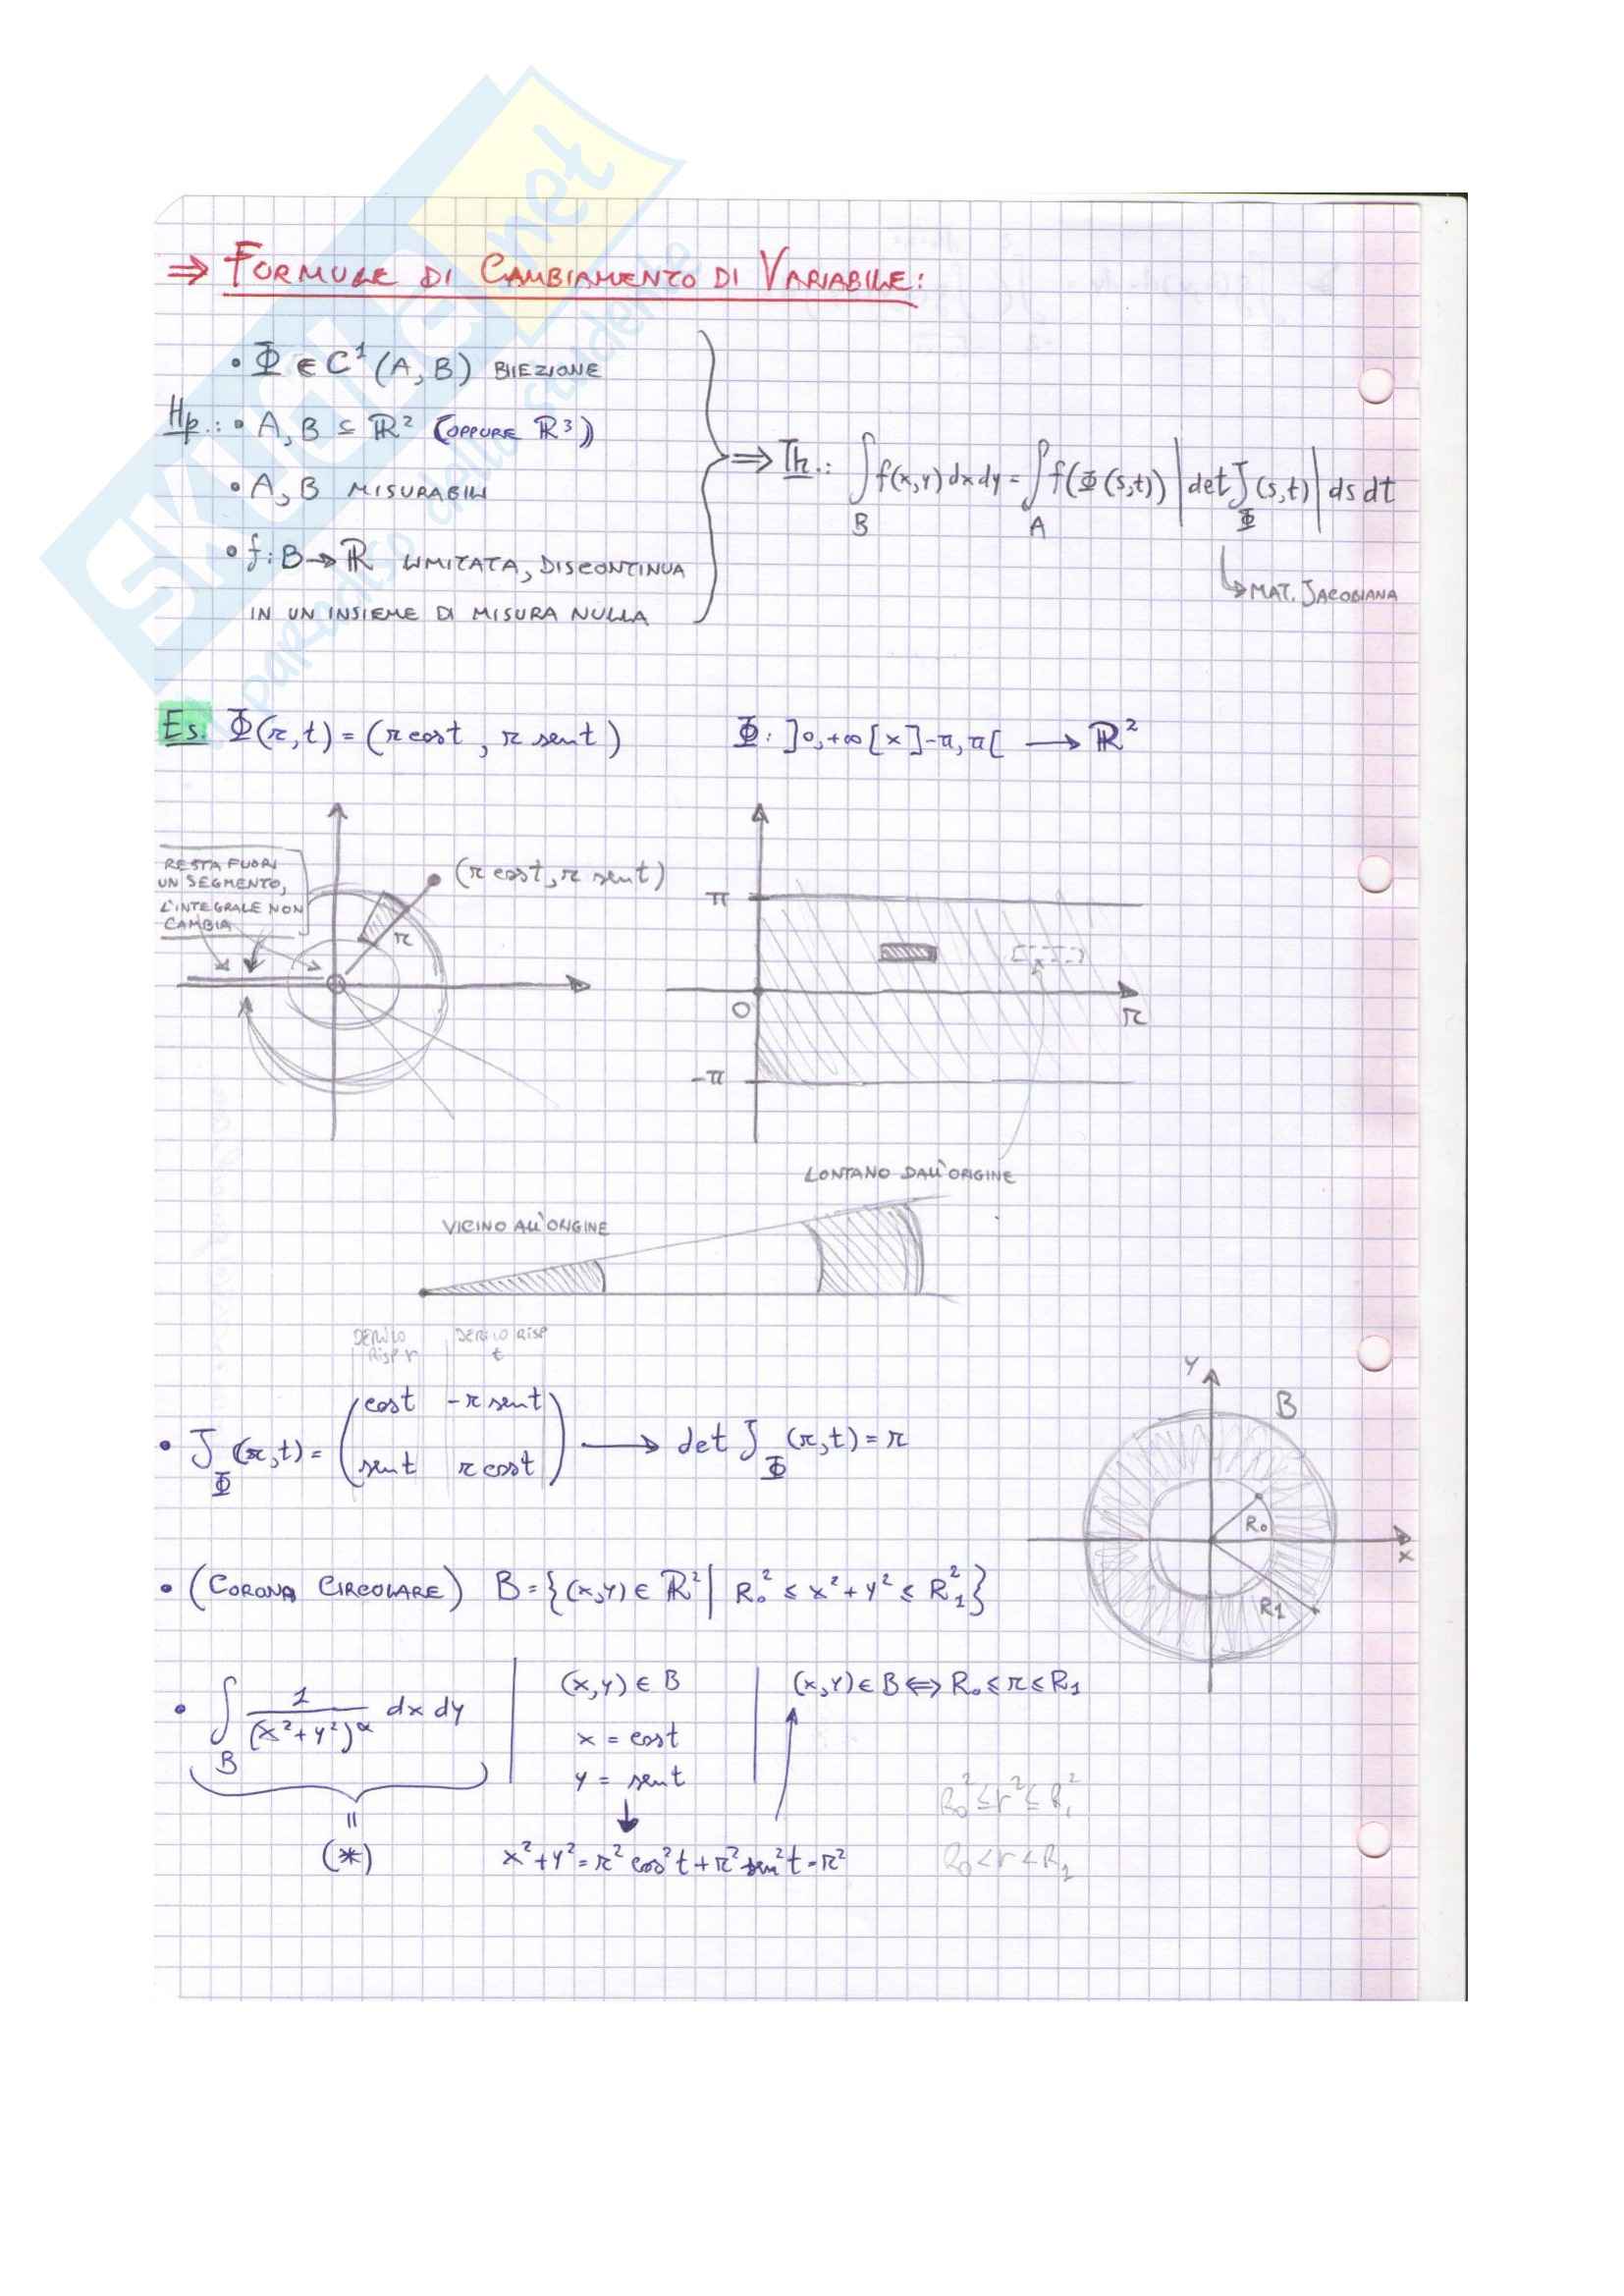 ⇒ FORMULE DI CAMBIAMENTO DI VARIABILE:
• Φ ∈ C¹(A, B) BIIEZIONE
Hp.: • A, B ⊆ ℝ² (OPPURE ℝ³)
• A, B MISURABILI
• f: B → ℝ LIMITATA, DISCONTINUA
IN UN INSIEME DI MISURA NULLA
⇒ Th.: ∫_B f(x,y) dx dy = ∫_A f(Φ(s,t)) |det J_Φ (s,t)| ds dt
↳ MAT. JACOBIANA
Es. Φ(r,t) = (r cost, r sent) Φ: ]0,+∞[ x ]-π, π[ → ℝ²
RESTA FUORI
UN SEGMENTO,
L'INTEGRALE NON
CAMBIA
(r cost, r sent)
r
π
0
r
-π
LONTANO DALL'ORIGINE
VICINO ALL'ORIGINE
DERILO RISP r
DERILO RISP t
• J_Φ (r,t) = (cost -r sent
sent r cost) → det J_Φ (r,t) = r
y
B
R₀
x
R1
• (CORONA CIRCOLARE) B = {(x,y) ∈ ℝ² | R₀² ≤ x² + y² ≤ R₁²}
• ∫_B 1/(x²+y²)^α dx dy
(x,y) ∈ B
x = cost
y = sent
(x,y) ∈ B ⟺ R₀ ≤ r ≤ R₁
R₀² ≤ r² ≤ R₁²
= (*)
x² + y² = r² cos²t + r² sen²t = r²
R₀ < r < R₁
SKUOLA.net
il paradiso dello studente